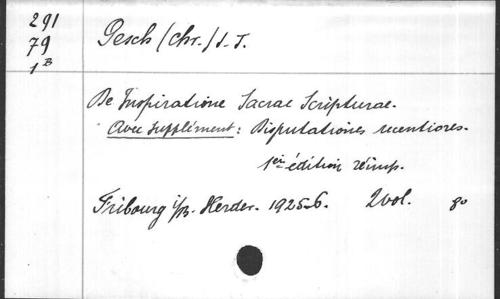 291
79
1B
Pesch (Chr.) S.J.
De Inspiratione Sacrae Scripturae.
Avec supplément: Disputationes recentiores.
1ère édition réimp.
Fribourg i/B. Herder. 1925-6. 2 vol. 8o